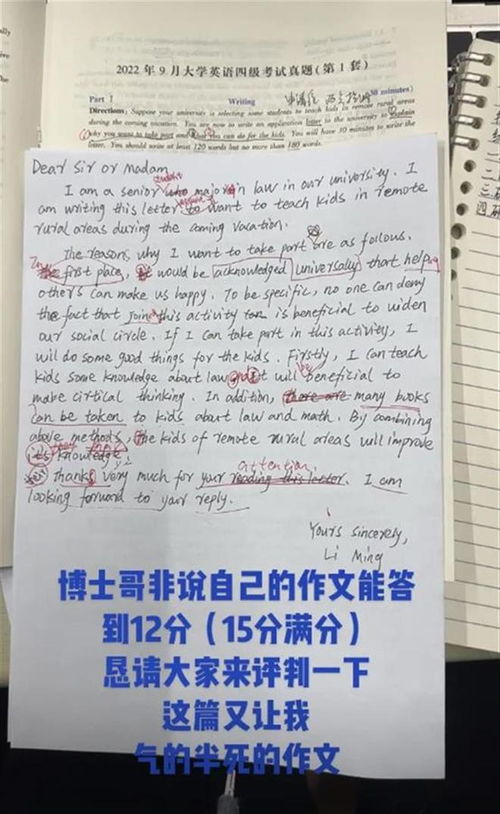 2022年9月大学英语四级考试真题(第1套)
Part I Writing (30 minutes)
Directions: Suppose your university is selecting some students to teach kids in remote rural areas
during the coming vacation. You are now to write an application letter to the university to explain
why you want to take part and what you can do for the kids. You will have 30 minutes to write the
letter. You should write at least 120 words but no more than 180 words.
Dear Sir or Madam,
I am a senior student who major in law in our university. I
am writing this letter to want to teach kids in remote
rural areas during the coming vacation.
The reasons why I want to take part are as follows.
first place, it would be acknowledged universally that help
others can make us happy. To be specific, no one can deny
the fact that join this activity is beneficial to widen
our social circle. If I can take part in this activity, I
will do some good things for the kids. Firstly, I can teach
kids some knowledge about law and it will beneficial to
make cirtical thinking. In addition, there are many books
can be taken to kids about law and math. By combining
above methods, the kids of remote rural areas will improve
its knowledge
Thanks very much for your reading this letter. I am
attention
looking forward to your reply.
Yours sincerely,
Li Ming
博士哥非说自己的作文能答
到12分（15分满分）
恳请大家来评判一下
这篇又让我
气的半死的作文